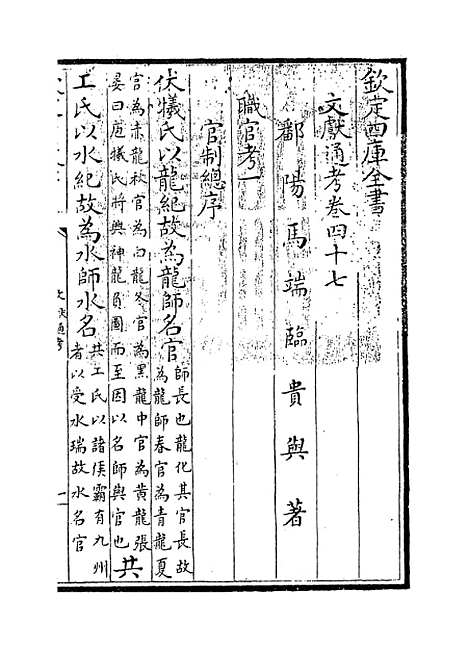 欽定四庫全書
文獻通考卷四十七
鄱陽馬端臨貴與著
職官考一
官制總序
伏犧氏以龍紀故為龍師名官師長也龍化其官長故為龍師春官為青龍夏
官為赤龍秋官為白龍冬官為黑龍中官為黃龍張晏曰庖犧氏將興神龍負圖而至因以名師與官也共
工氏以水紀故為水師水名共工氏以諸侯霸有九州者以受水瑞故水名官
文獻通考
一